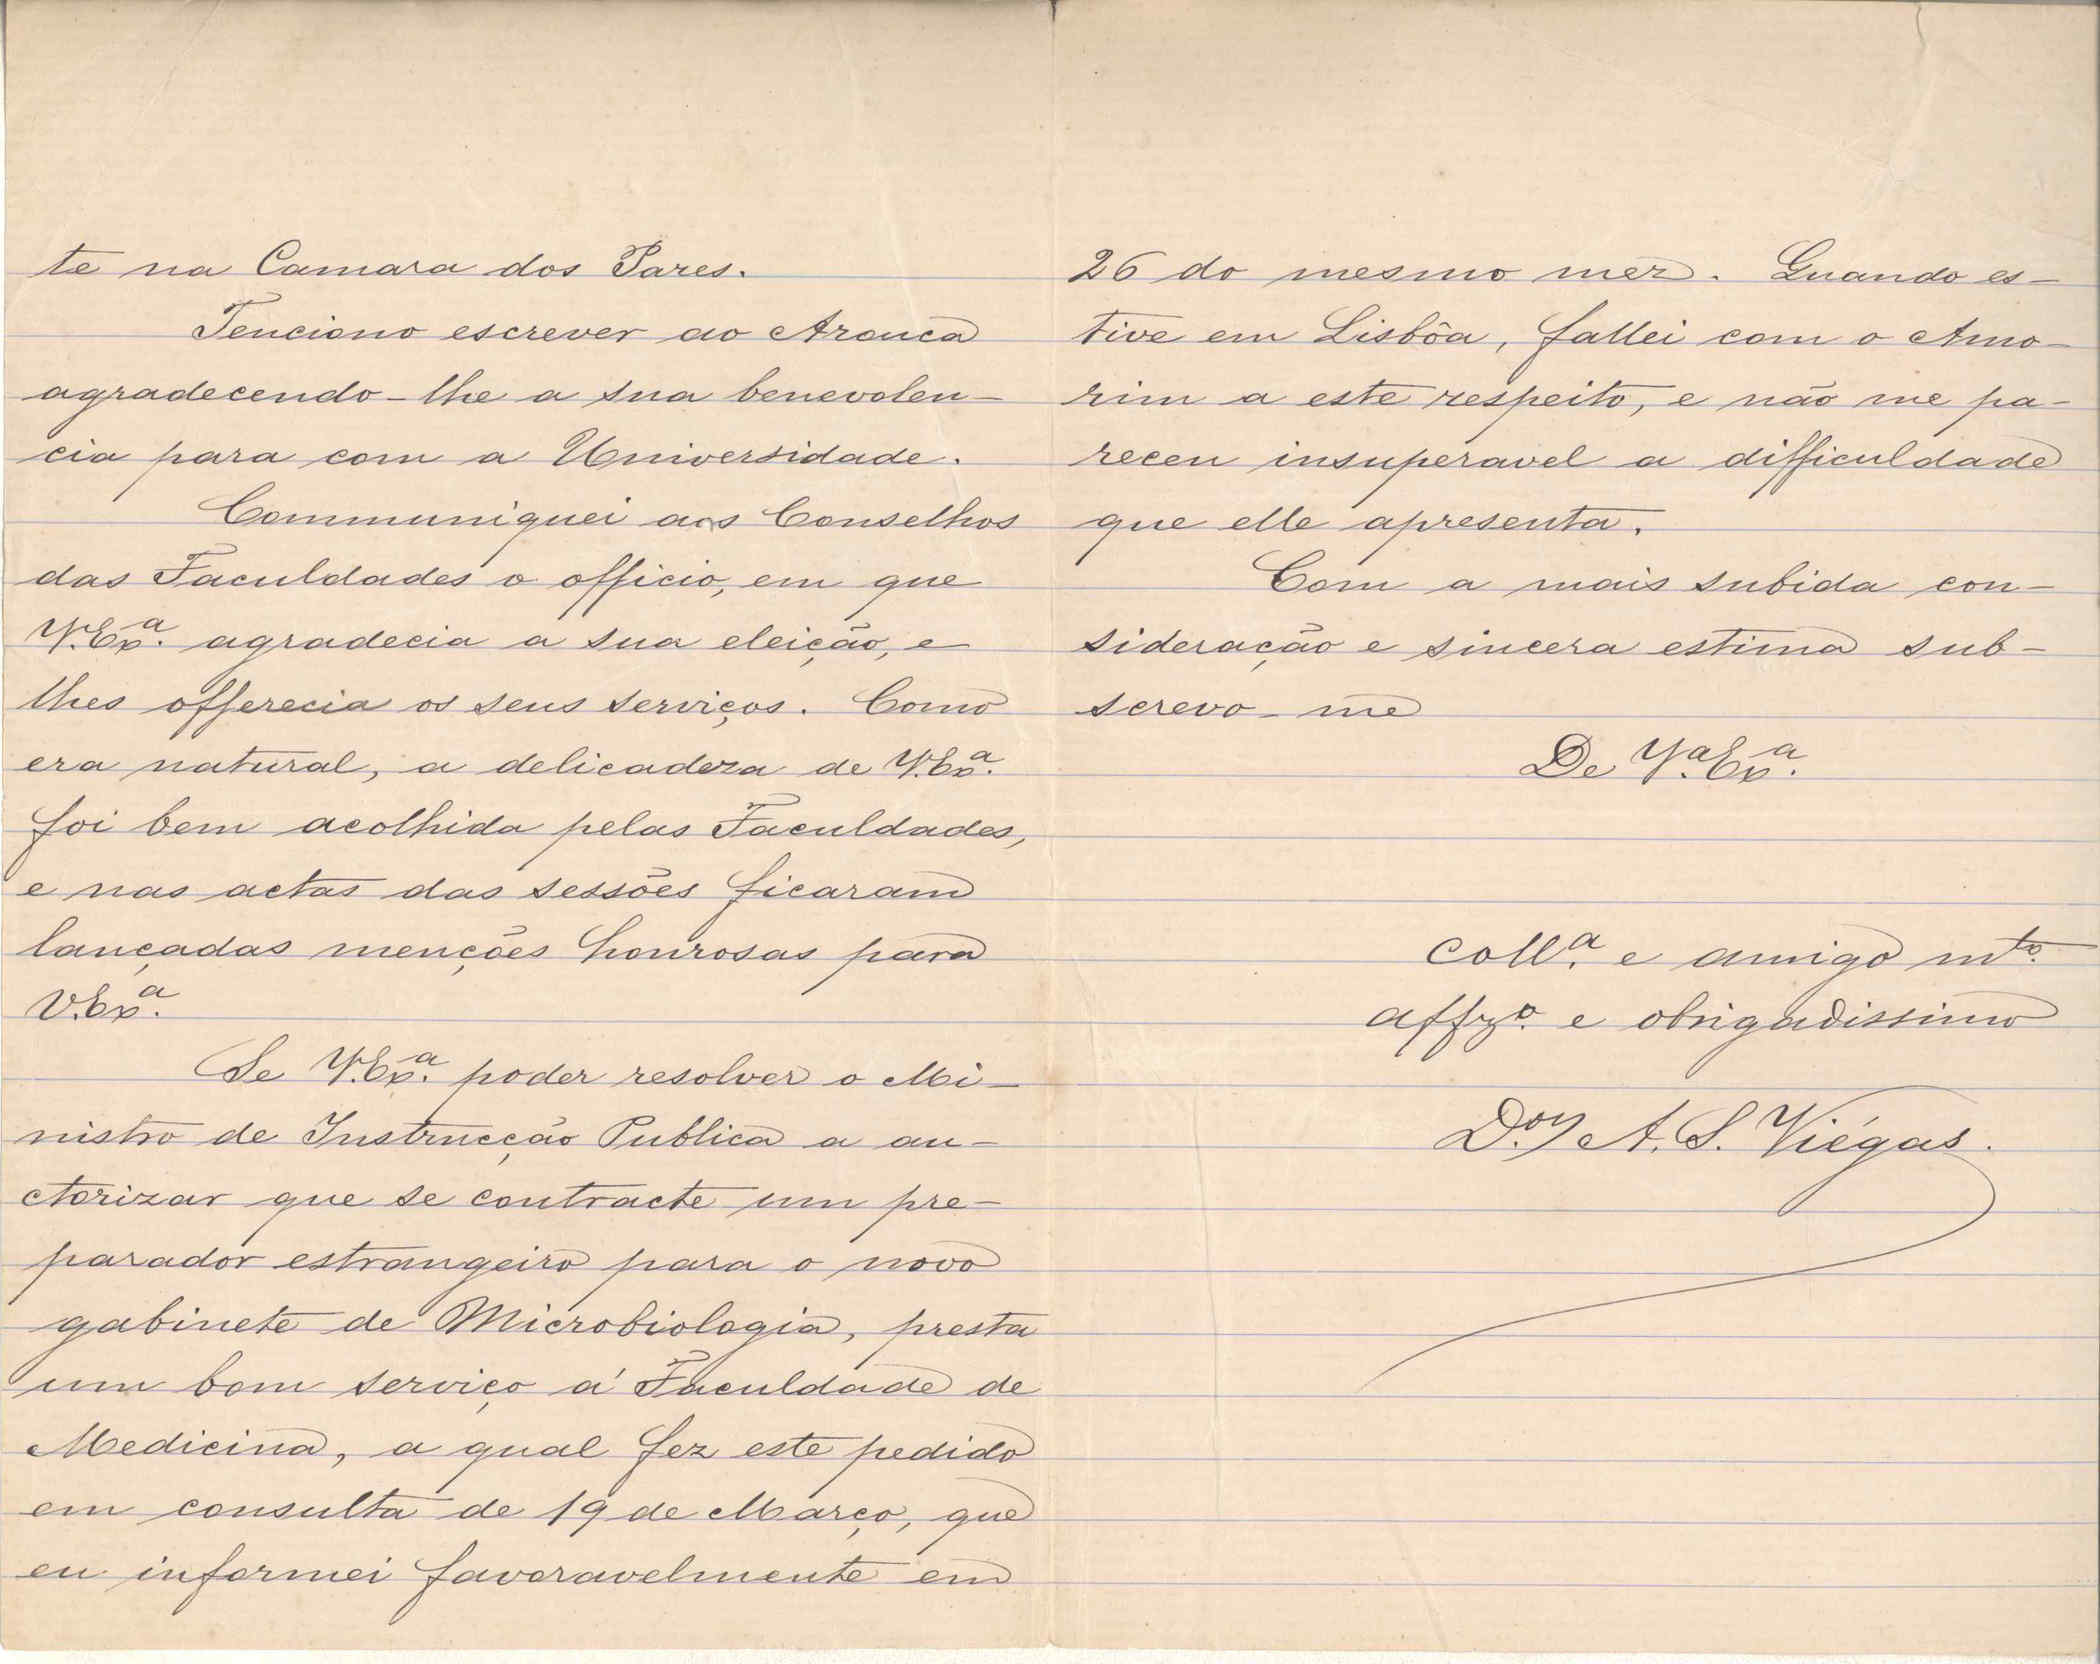 te na Camara dos Pares.
Tenciono escrever ao Arouca
agradecendo-lhe a sua benevolen-
cia para com a Universidade.
Communiquei aos Conselhos
das Faculdades o officio, em que
V.Ex.ª agradecia a sua eleição, e
lhes offerecia os seus serviços. Como
era natural, a delicadeza de V.Ex.ª
foi bem acolhida pelas Faculdades,
e nas actas das sessões ficaram
lançadas menções honrosas para
V.Ex.ª
Se V.Ex.ª poder resolver o Mi-
nistro de Instrucção Publica a au-
ctorizar que se contracte um pre-
parador estrangeiro para o novo
gabinete de Microbiologia, presta
um bom serviço á Faculdade de
Medicina, a qual fez este pedido
em consulta de 19 de Março, que
eu informei favoravelmente em
26 do mesmo mez. Quando es-
tive em Lisbôa, fallei com o Amo-
rim a este respeito, e não me pa-
receu insuperavel a difficuldade
que elle apresenta.
Com a mais subida con-
sideração e sincera estima sub-
screvo-me
De V.ª Ex.ª
coll.ª e amigo mt.º
aff.º e obrigadissimo
D.or A. S. Viégas.